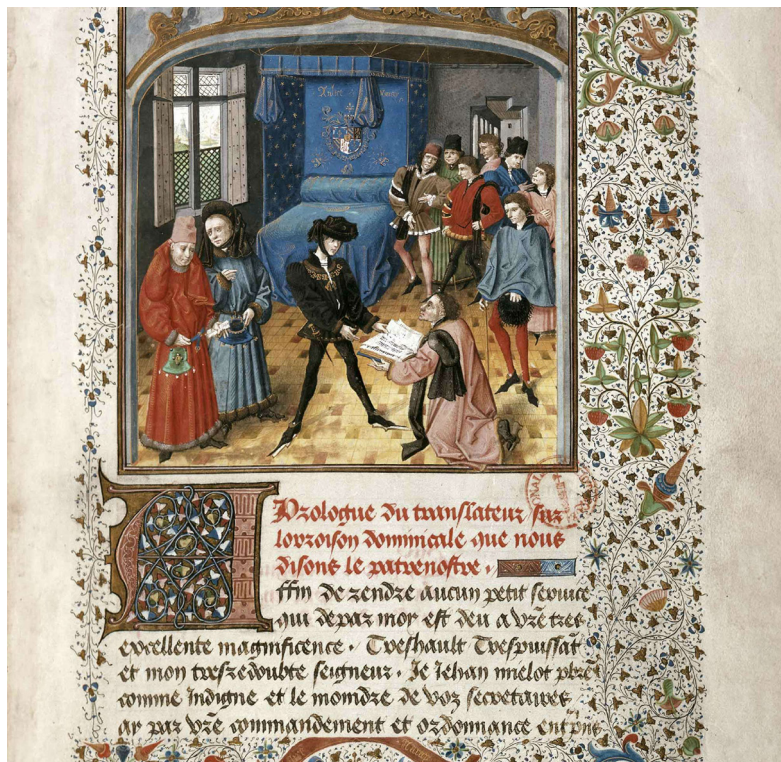 Prologue du translateur sur
lorroison dominicale que nous
disons le patrenostre.
Affin de rendre aucun petit service
qui de par moy est deu a vr̃e tres
excellente magnificence. Treshault Trespuissãt
et mon tresredoubte seigneur. Je Jehan mielot pb̃re
comme Indigne et le moindre de voz secretaires,
ay par vr̃e commandement et ordonnance